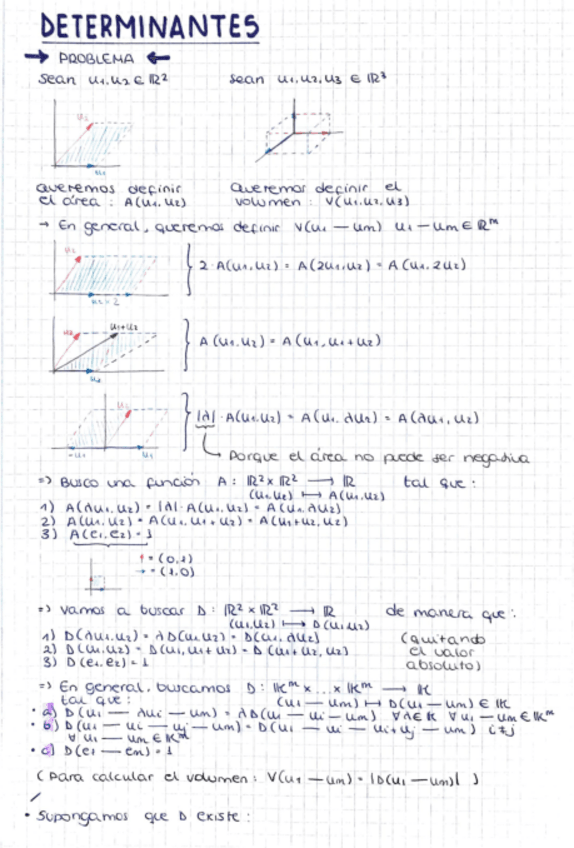 DETERMINANTES
→ PROBLEMA ←
Sean u₁,u₂ ∈ ℝ² Sean u₁,u₂,u₃ ∈ ℝ³
u₂
u₁
queremos definir Queremos definir el
el área : A(u₁,u₂) volumen : V(u₁,u₂,u₃)
→ En general, queremos definir V(u₁ — um) u₁ — um ∈ ℝᵐ
2·A(u₁,u₂) = A(2u₁,u₂) = A(u₁,2u₂)
u₂ u₁+u₂
A(u₁,u₂) = A(u₁,u₁+u₂)
u₁
u₂
|λ|·A(u₁,u₂) = A(u₁,λu₂) = A(λu₁,u₂)
-u₁ u₁
Porque el área no puede ser negativa
=> Busco una función A : ℝ²×ℝ² → ℝ tal que :
(u₁,u₂) ↦ A(u₁,u₂)
1) A(λu₁,u₂) = |λ|·A(u₁,u₂) = A(u₁,λu₂)
2) A(u₁,u₂) = A(u₁,u₁+u₂) = A(u₁+u₂,u₂)
3) A(e₁,e₂) = 1
↑ = (0,1)
→ = (1,0)
=> Vamos a buscar D : ℝ²×ℝ² → ℝ de manera que :
(u₁,u₂) ↦ D(u₁,u₂)
1) D(λu₁,u₂) = λD(u₁,u₂) = D(u₁,λu₂) (quitando
2) D(u₁,u₂) = D(u₁,u₁+u₂) = D(u₁+u₂,u₂) el valor
3) D(e₁,e₂) = 1 absoluto)
=> En general, buscamos D : 𝕂ᵐ × ... × 𝕂ᵐ → 𝕂
tal que : (u₁ — um) ↦ D(u₁ — um) ∈ 𝕂
• a) D(u₁ — λui — um) = λD(u₁ — ui — um) ∀λ∈𝕂 ∀u₁ — um ∈ 𝕂ᵐ
• b) D(u₁ — ui — uj — um) = D(u₁ — ui — ui+uj — um) i≠j
∀ u₁ — um ∈ 𝕂ᵐ
• c) D(e₁ — em) = 1
(Para calcular el volumen : V(u₁ — um) = |D(u₁ — um)| )
• Supongamos que D existe :